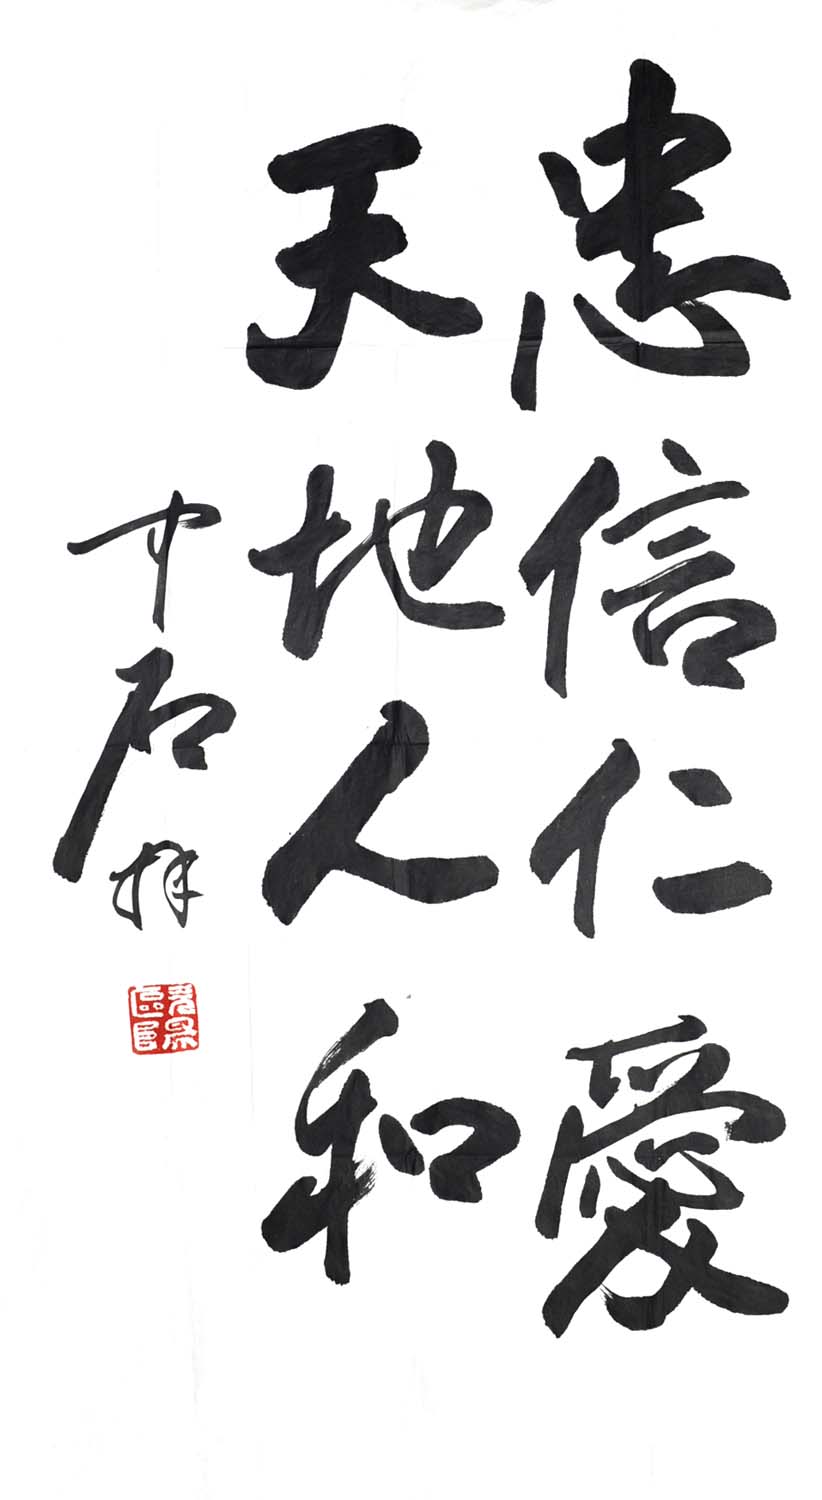 忠信仁愛
天地人和
中石拜